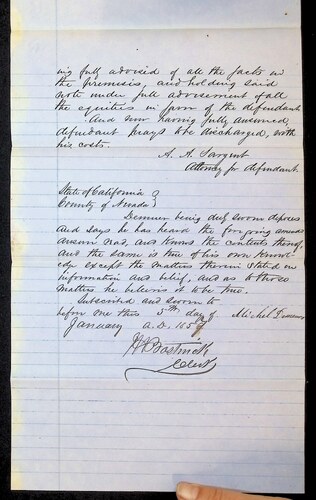 ing fully advised of all the facts in
the premises, and holding said
note under full advisement of all
the equities in favor of the defendant
And now having fully answered,
defendant prays to be discharged, with
his costs.
A. A. Sargent
Attorney for defendant
State of California }
County of Nevada }
being duly sworn deposes
and says he has heard the foregoing amended
answer read, and knows the contents thereof,
and the same is true of his own knowl-
edge except the matters therein stated on
information and belief, and as to those
matters he believes it to be true.
Subscribed and sworn to
before me this 5th day of Michel
January A.D. 185
Clerk